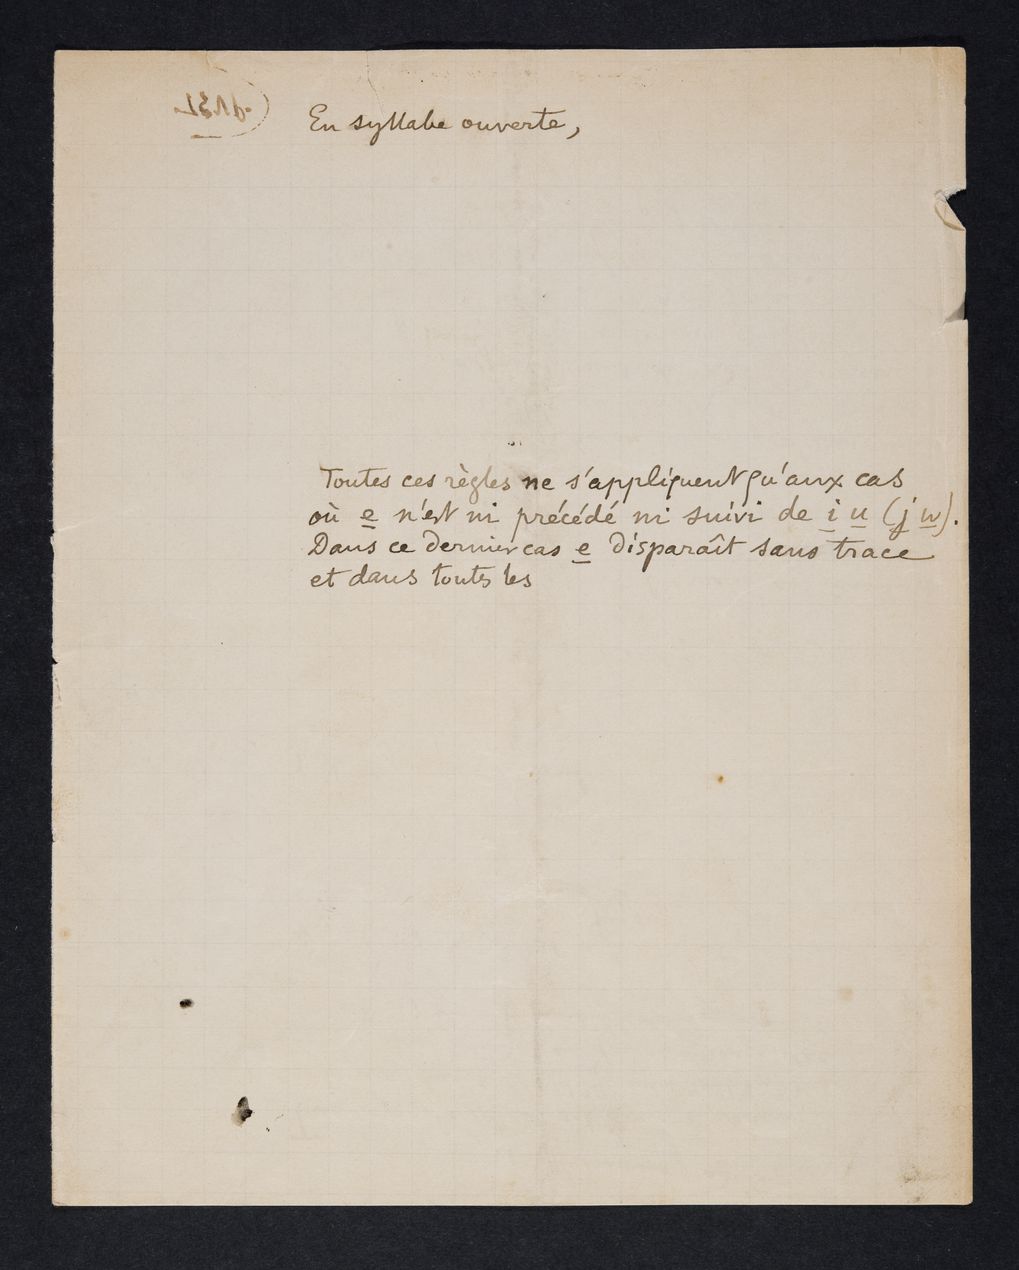 En syllabe ouverte,
Toutes ces règles ne s'appliquent qu'aux cas
où e n'est ni précédé ni suivi de i u (j w).
Dans ce dernier cas e disparaît sans trace
et dans toutes les